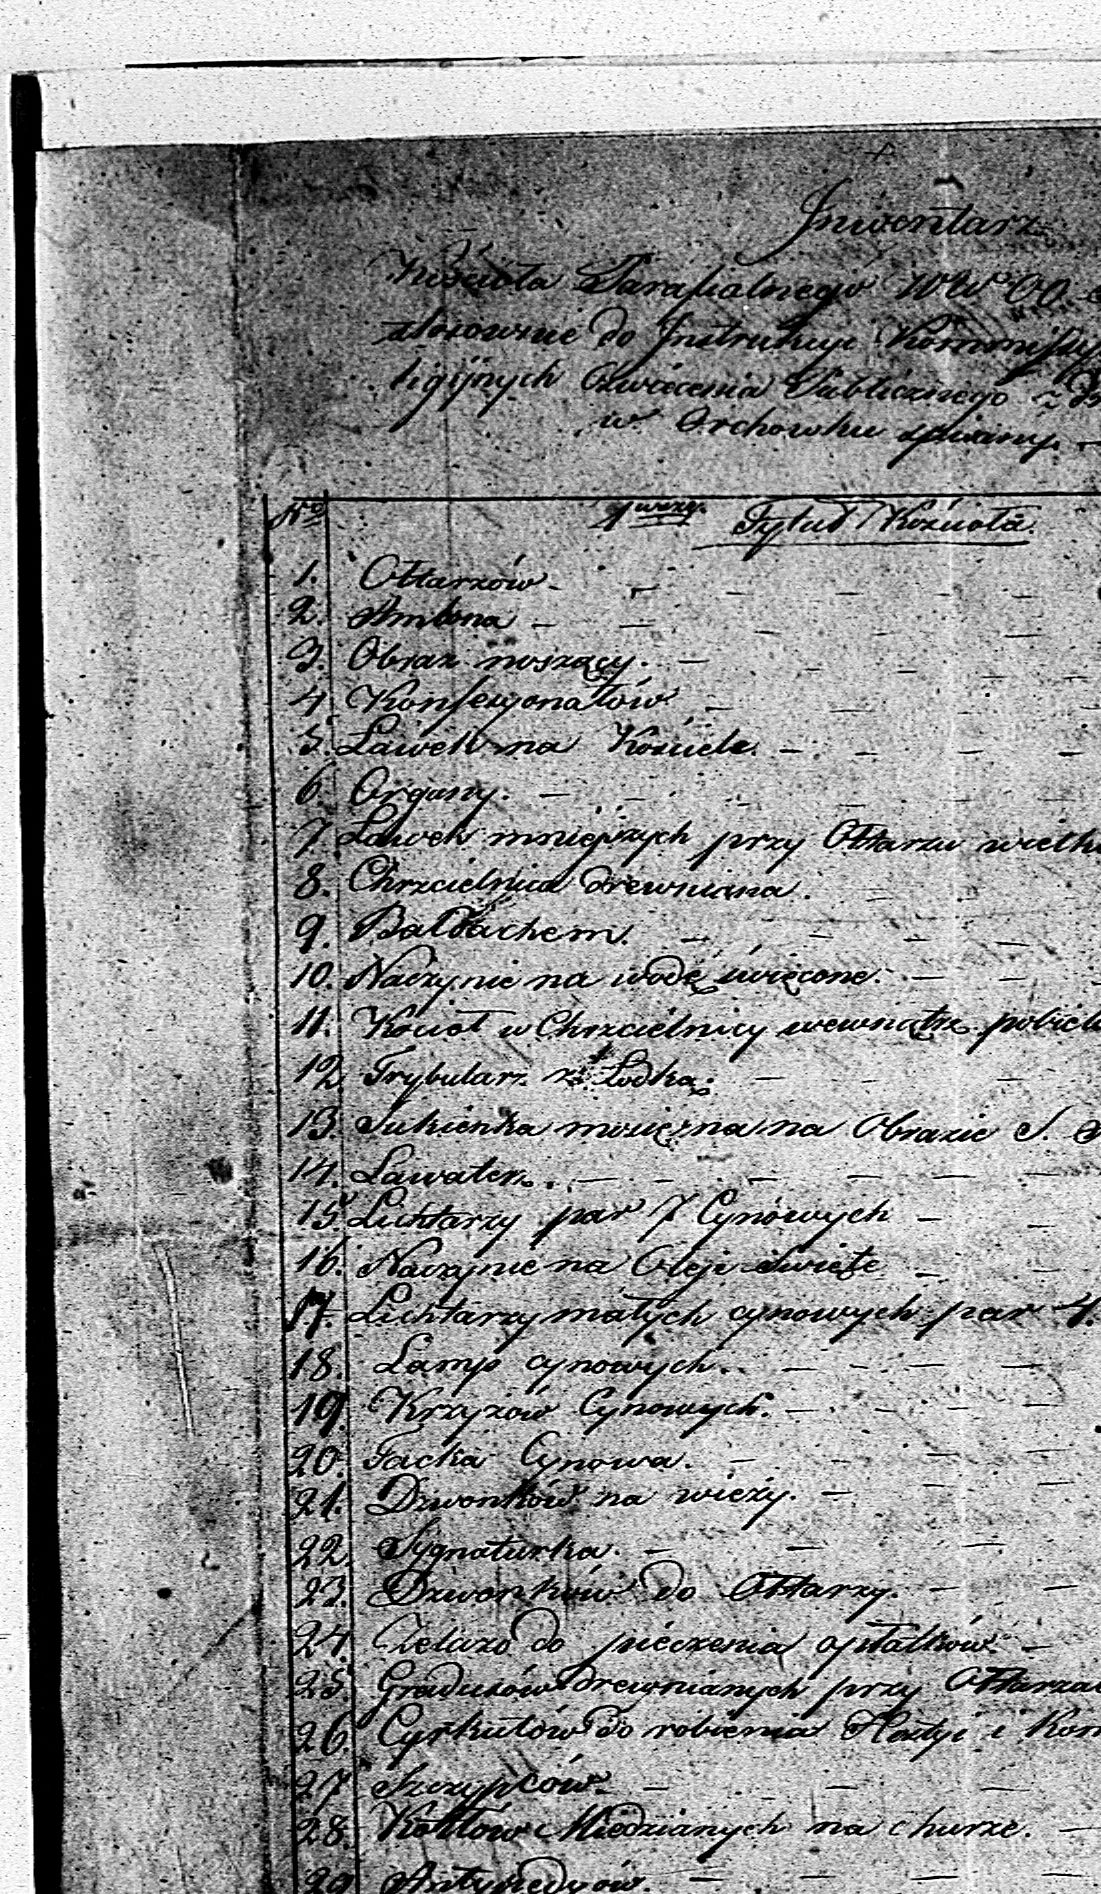 Inwentarz
Kościoła Parafialnego WW OO
stosownie do Instrukcyi Kommissyi
ligijnych Oświecenia Publicznego z
w Orchówku spisany. —
No 1wszy. Tytuł Kościoła.
1. Ołtarzów —
2. Ambona —
3. Obraz noszący. —
4 Konfesyonałów —
5. Ławek na Kościele. —
6. Organy. —
7. Ławek mniejszych przy Ołtarzu wielki
8. Chrzcielnica drewniana.
9. Baldachem. —
10. Naczynie na wodę święcone. —
11. Kocioł w Chrzcielnicy wewnątrz pobiela
12. Trybularz z Łodką. —
13. Sukienka mosiężna na Obrazie S.
14. Lawaterz. —
15. Lichtarzy par 7 Cynowych —
16. Naczynie na Oleje Swięte —
17. Lichtarzy małych cynowych par 4.
18. Lamp cynowych. —
19 Krzyżów Cynowych. —
20. Tacka Cynowa. —
21. Dzwonków na wieży. —
22. Sygnaturka. —
23. Dzwonków do Ołtarzy. —
24. Żelazo do pieczenia opłatków —
25. Gradusów drewnianych przy Ołtarzac
26. Cyrkułów do robienia Hostyi i Kom
27 Szczypców —
28. Kotłów Miedzianych na churze. —
29 Antypedyów. —